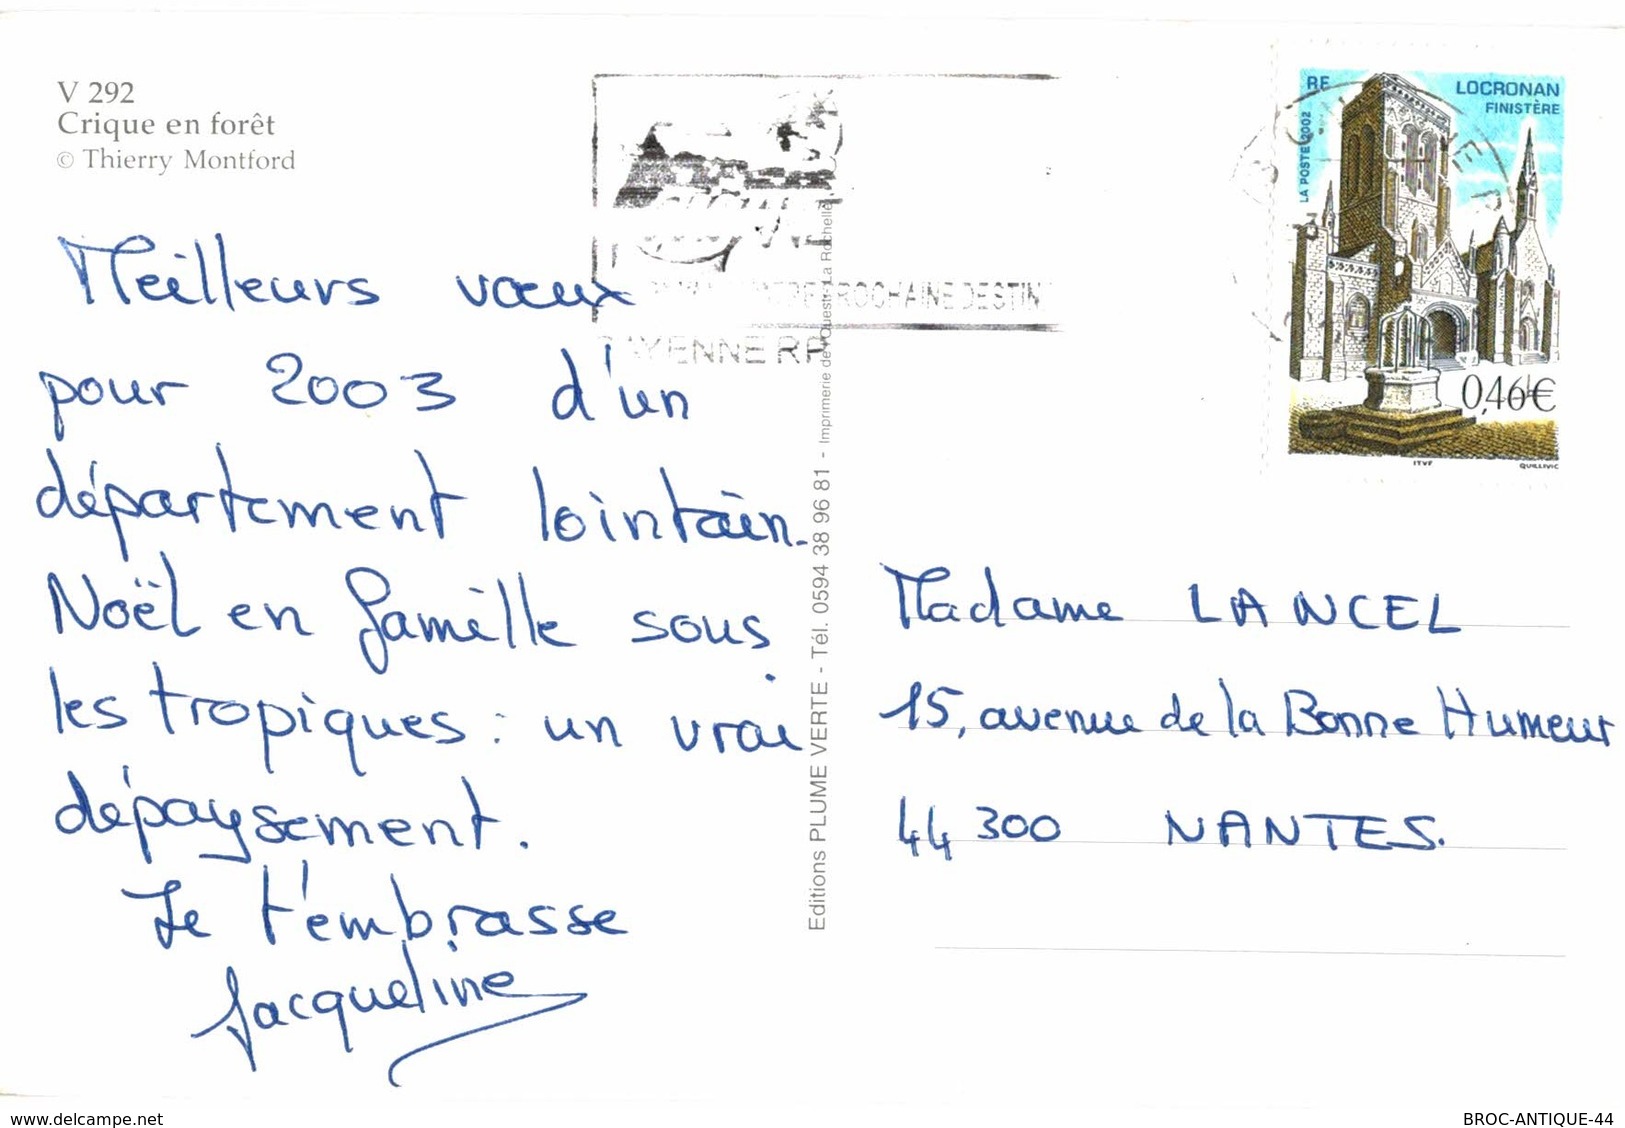 V 292
Crique en forêt
© Thierry Montford
Meilleurs vœux
pour 2003 d'un
département lointain.
Noël en famille sous
les tropiques : un vrai
dépaysement.
Je t'embrasse
Jacqueline
PROCHAINE DESTIN
CAYENNE RP
Editions PLUME VERTE - Tél. 0594 38 96 81 - Imprimerie de l'Ouest - La Rochelle
RF
LOCRONAN
FINISTÈRE
LA POSTE 2002
0,46€
ITVF
QUILLIVIC
Madame LANCEL
15, avenue de la Bonne Humeur
44 300 NANTES.
www.delcampe.net
BROC-ANTIQUE-44